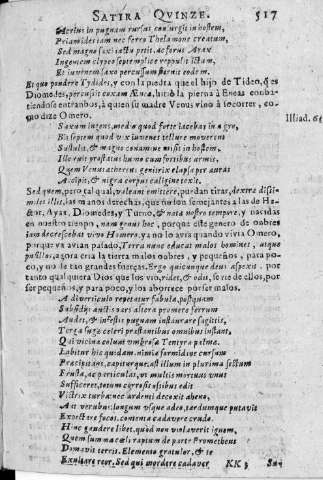 SATIRA QVINZE. 517
Acrius in pugnam rursus consurgit in hostem,
Priamides iam nec feret Thelamone creatum,
Sed magno saxi iactu petit, ac ferus Ayax
Ingentem clypeo septemplice repulit ictam,
Et iuvenem saxo percussum sternis eodem.
Et quo pondere Tydides, y con la piedra que el hijo de Tideo, q̃ es
Diomedes, percussit coxam Æneæ, hirio la pierna à Eneas comba-
tiendose entranbos, à quien su madre Venus vino à socorrer, co-
mo dize Omero.
Illiad. 5
Saxum ingens, media quod forte iacebat in agro,
Bis septem quod vix iuvenes tellure moverent
Sustulit, & magno conamine misit in hostem,
Illo ruit prostatus humo cum fortibus armis,
Quem Venus atherens genitrix elapsa per auras
Accipit, & nigra corpus caligine texit.
Sed quem, pero tal qual, valeant emittere, puedan tirar, dextra dissi-
miles illis, las manos derechas, que no son semejantes a las de He-
ctor, Ayax, Diomedes, y Turno, & nata nostro tempore, y nacidas
en nuestro tienpo, nam genus hoc, porque este genero de onbres
iam decrescebat vivo Homero, ya no lo avia quando vivia Omero,
porque ya avian pasado, Terra nunc educat malos homines, atque
pusillos, agora cria la tierra malos onbres, y pequeños, para po-
co, y no de tan grandes fuerças. Ergo quicunque deus aspexit, por
tanto qualquiera Dios que los vio, rides, & odit, se rie de ellos, por
ser pequeños, y para poco, y los aborrece por ser malos.
A diverticulo repetatur fabula, postquam
Subsidijs aucti pars altera promere ferrum
Audet, & infestis pugnam instaurare sagittis,
Terga fuga celeri præstantibus omnibus instant,
Qui vicina colunt umbrosæ Tentyra palmæ.
Labitur hic quidam, nimia formidine cursum
Præcipitans, capiturque, ast illum in plurima sectum
Frusta, ac particulas, ut multis mortuus unus
Sufficeret, totum corrosis ossibus edit
Victrix turba: nec ardenti decoxit aheno,
Aut verubus: longum usque adeo, tardumque putavit
Expectare focos, contenta cadavere crudo.
Hinc gaudere libet, quod non violaverit ignem,
Quem summa cæli raptum de parte Prometheus
Donavit terris. Elemento gratulor, & te
Exultare reor. Sed qui mordere cadaver KK 3 Sus